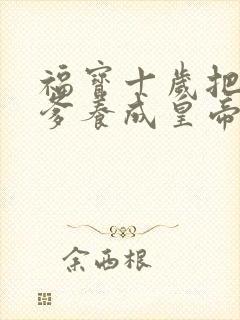 福寶十歲把
爹養成皇帝
余西根